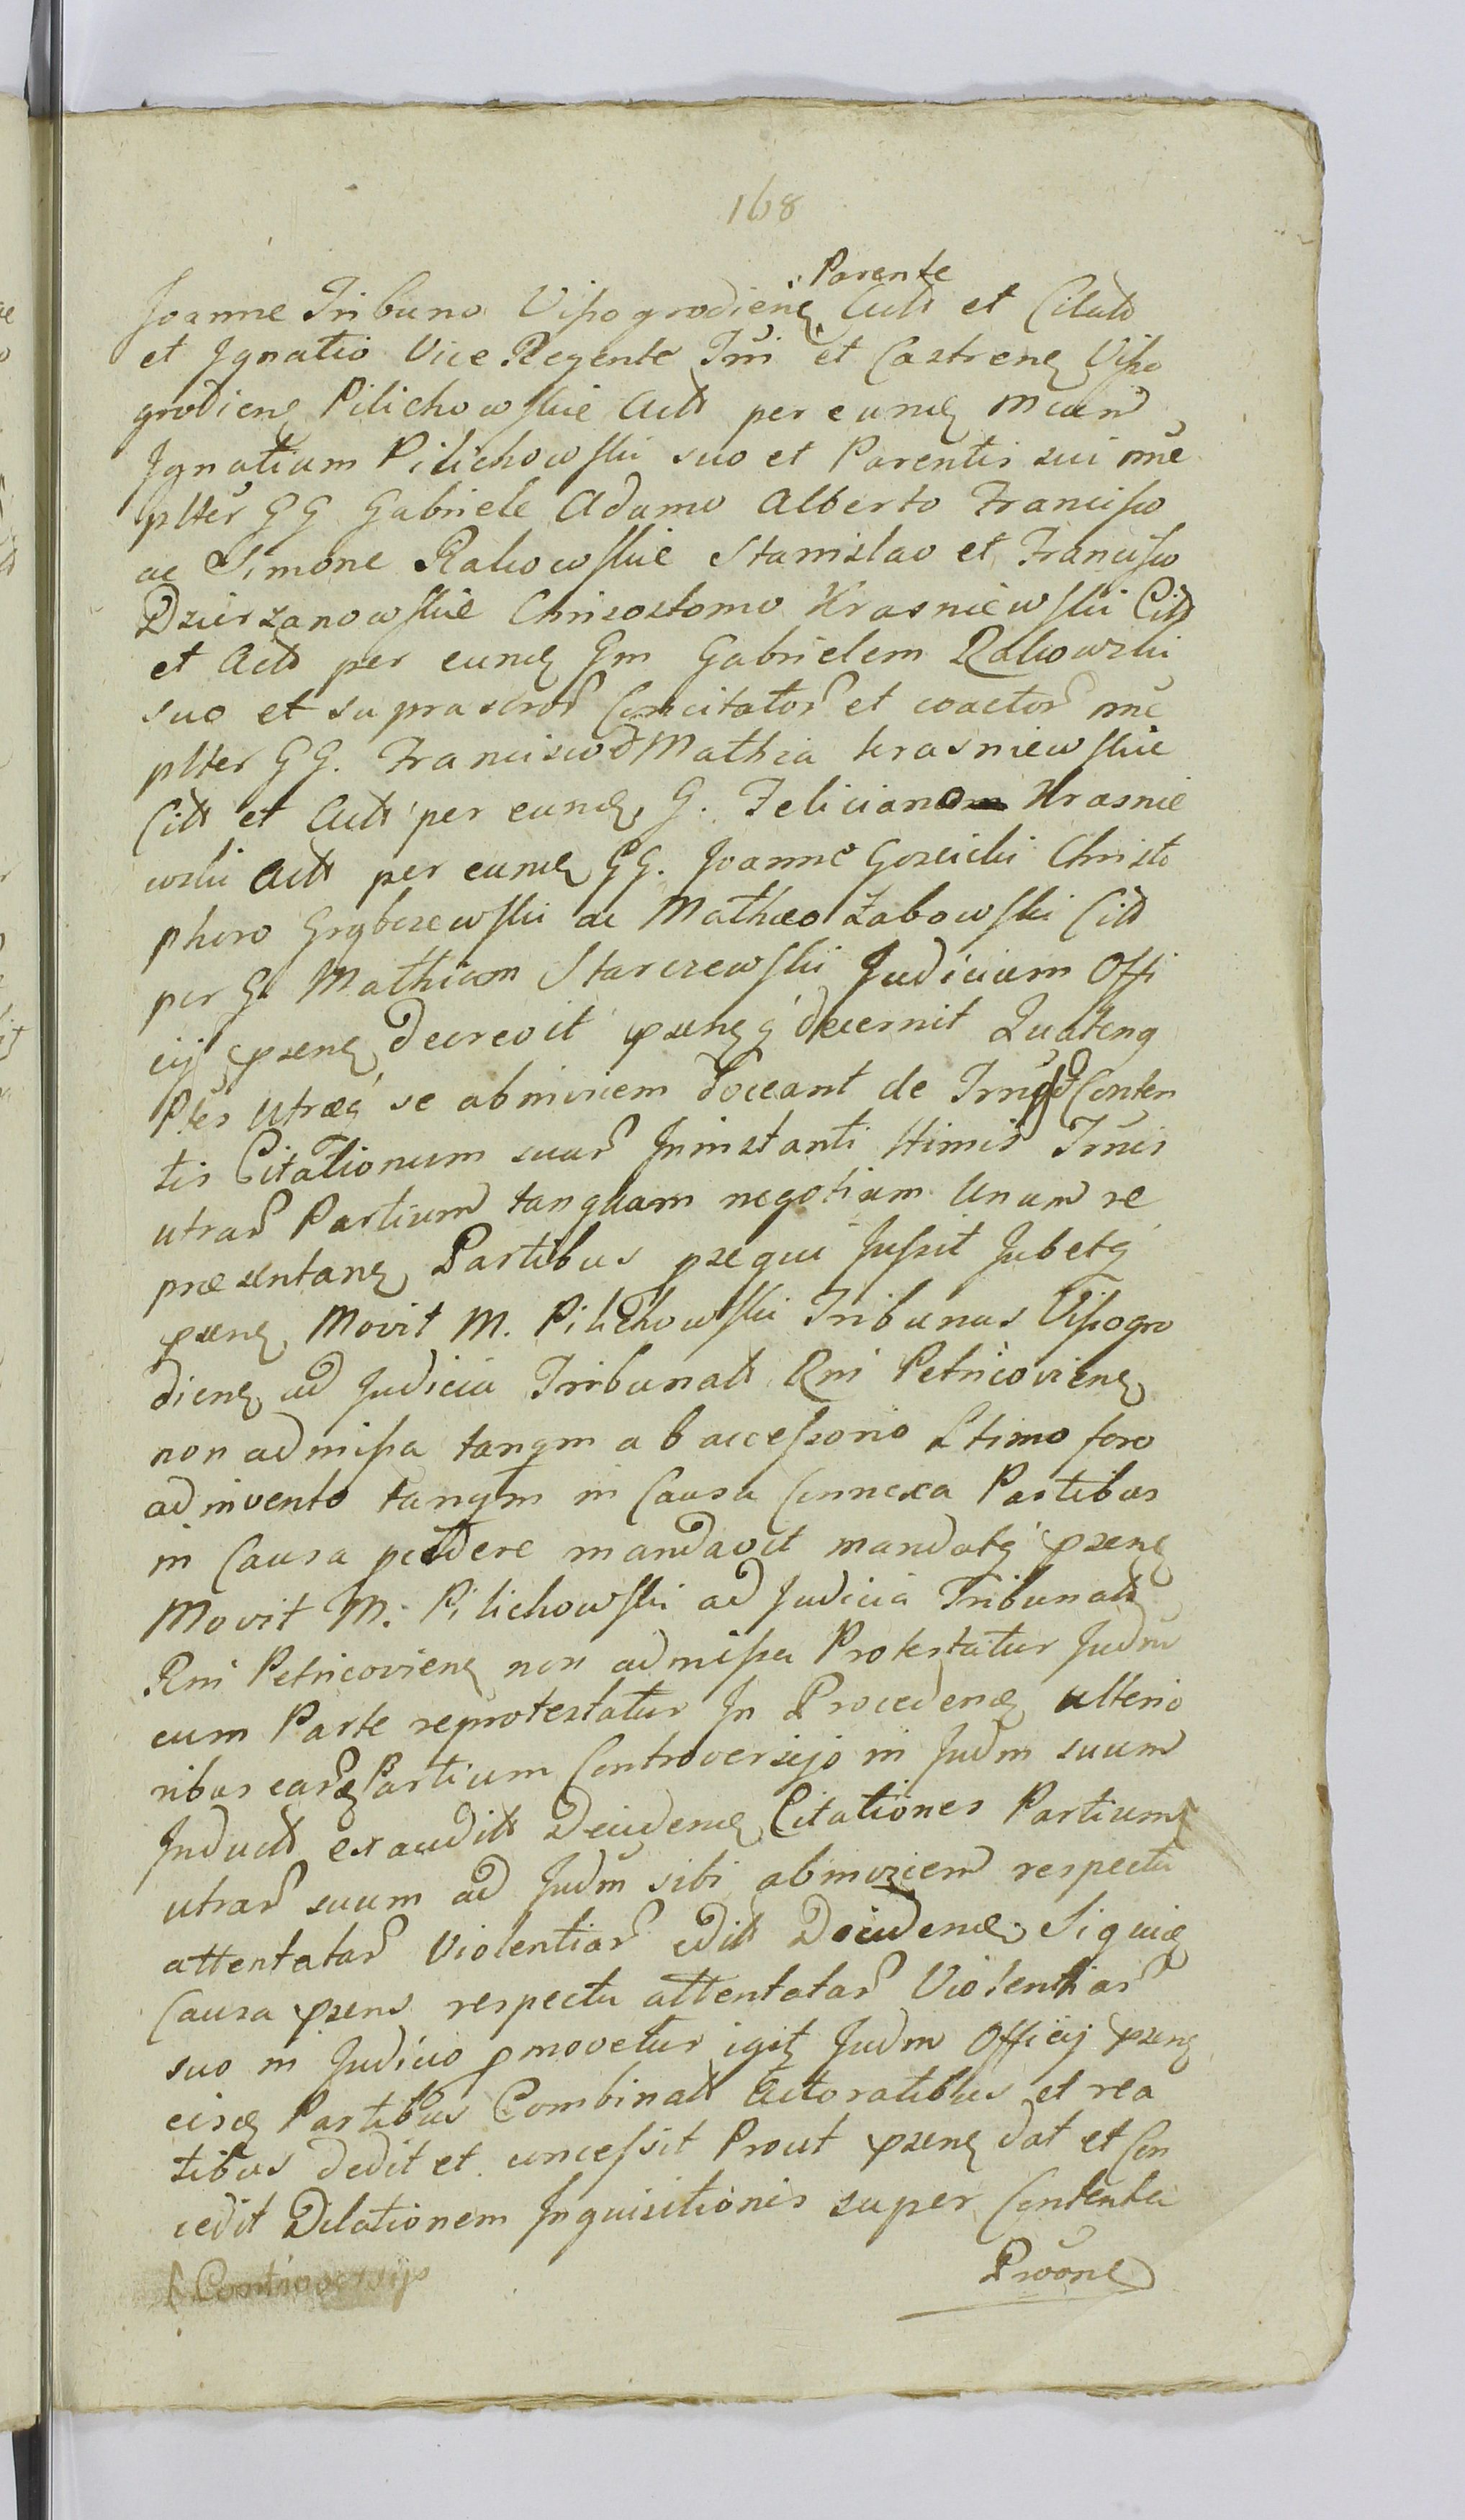 168
Parente
Joanne Tribuno Vissogrodien Actt et Citatt
et Ignatio Vice Regente Trri et Castren Visso
grodien Pilichowskie Actt per eund Mcum
Ignatium Pilichowski suo et Parentis sui nne
plter GG Gabriele Adamo Alberto Francisco
ac Simone Rakowskie Stanislao et Francisco
Dzierzanowskie Chrisostomo Krasniewski Citt
et Actt per eund Gm Gabrielem Rakowski
suo et suprascror Concitator et coactor nne
plter GG. Francisco et Mathia Krasniewskie
Citt et Actt per eund G. Feliciano Krasnie
wski Actt per eund GG. Joanne Goscicki Christo
phoro Grybczewski ac Mathæo Żabowski Citt
per G. Mathiam Starczewski Judicium Offi
cij psens Decrevit psensq decernit Quatenq
Ptes Utræq se abinvicem doceant de Conten
tis Citationum suar Ininstanti ttimis Trmis
utrar Partium tanquam negotium Unum re
præsentan Partibus psequi Jussit Jubetq
psens Movit M. Pilichowski Tribunus Vissogro
dien ad Judicia Tribunatt Rni Petricovien
non admissa tanqm ab accessorio Ltimo foro
adinvento tanqm in Causa Connexa Partibus
in Causa pcedere mandavit mandatq psens
Movit M. Pilichowski ad Judicia Tribunatt
Rni Petricovien non admissa Protestatur Judm
cum Parte reprotestatur In Procedend ulterio
ribus eard Partium Controversijs in Judm suum
Inductt exauditt Decidend Citationes Partium
utrar suum ad Judm sibi abinvicem respectu
attentatar Violentiar editt Decidend. Siquid
Causa psens respectu attentatar Violentiar
suo in Judicio pmovetur igit Judm Officij psens
eisd Partibus Combinatt Actoratibus et rea
tibus dedit et concessit Prout psens dat et Con
cedit Dilationem Inquisitionis super Contenta
Controversijs
Proone